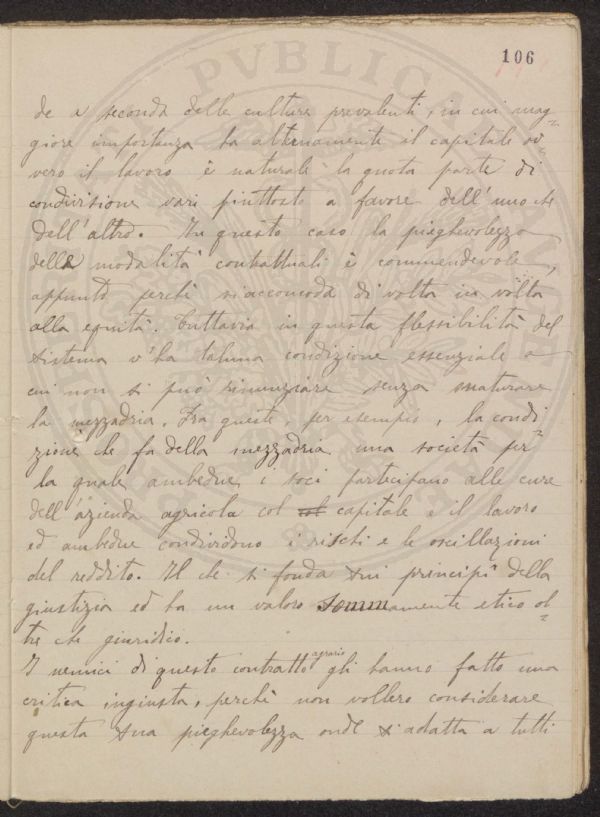 106
de a seconda delle culture prevalenti, in cui mag=
giore importanza ha alternamente il capitale ov=
vero il lavoro è naturale la quota parte di
condivisione vari piuttosto a favore dell'uno che
dell'altro. In questo caso la pieghevolezza
della modalità contrattuali è commendevole,
appunto perchè si accomoda di volta in volta
alla equità. Tuttavia in questa flessibilità del
sistema v'ha taluna condizione essenziale a
cui non si può rinunziare senza snaturare
la mezzadria. Fra queste, per esempio, la condi=
zione che fa della mezzadria una società per
la quale ambedue i soci partecipano alle cure
dell'azienda agricola col col capitale e il lavoro
ed ambedue condividono i rischi e le oscillazioni
del reddito. Il che si fonda sui principî della
giustizia ed ha un valore sommamente etico ol=
tre che giuridico.
I nemici di questo contratto agrario gli hanno fatto una
critica ingiusta, perchè non vollero considerare
questa sua pieghevolezza onde s'adatta a tutti